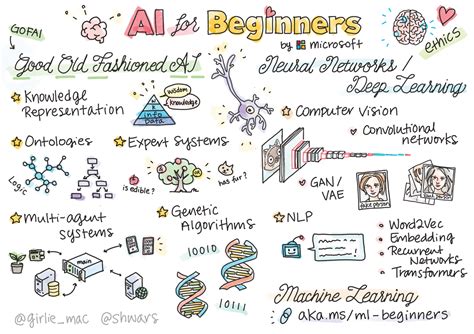 GOFAI
AI for Beginners
by Microsoft
ethics
Good Old Fashioned AI
Knowledge
Representation
Wisdom
Knowledge
info
Data
Ontologies
Logic
Expert Systems
is edible?
has fur?
Multi-agent
systems
main
Genetic
Algorithms
10010
10111
Neural Networks /
Deep Learning
Computer Vision
Convolutional
networks
GAN/
VAE
fake person
NLP
Word2Vec
Embedding
Recurrent
Networks
Transformers
Machine Learning
aka.ms/ml-beginners
@girlie_mac @shwars